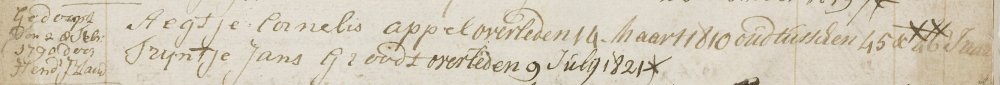 Gedoopt
Den 28 Febr:
1790 door
Aegtje Cornelis appel overleden 14 Maart 1810 oud tusschen 45 & 46 Jaar
Trijntje Jans Groodt overleden 9 July 1821